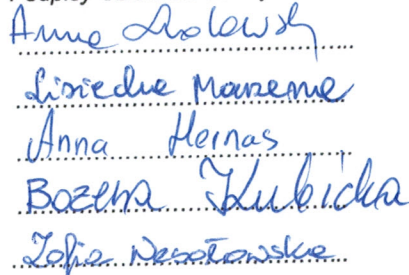 Anna
Lisiecka Marzena
Anna Hernas
Bożena Kubicka
Zofia Wesołowska